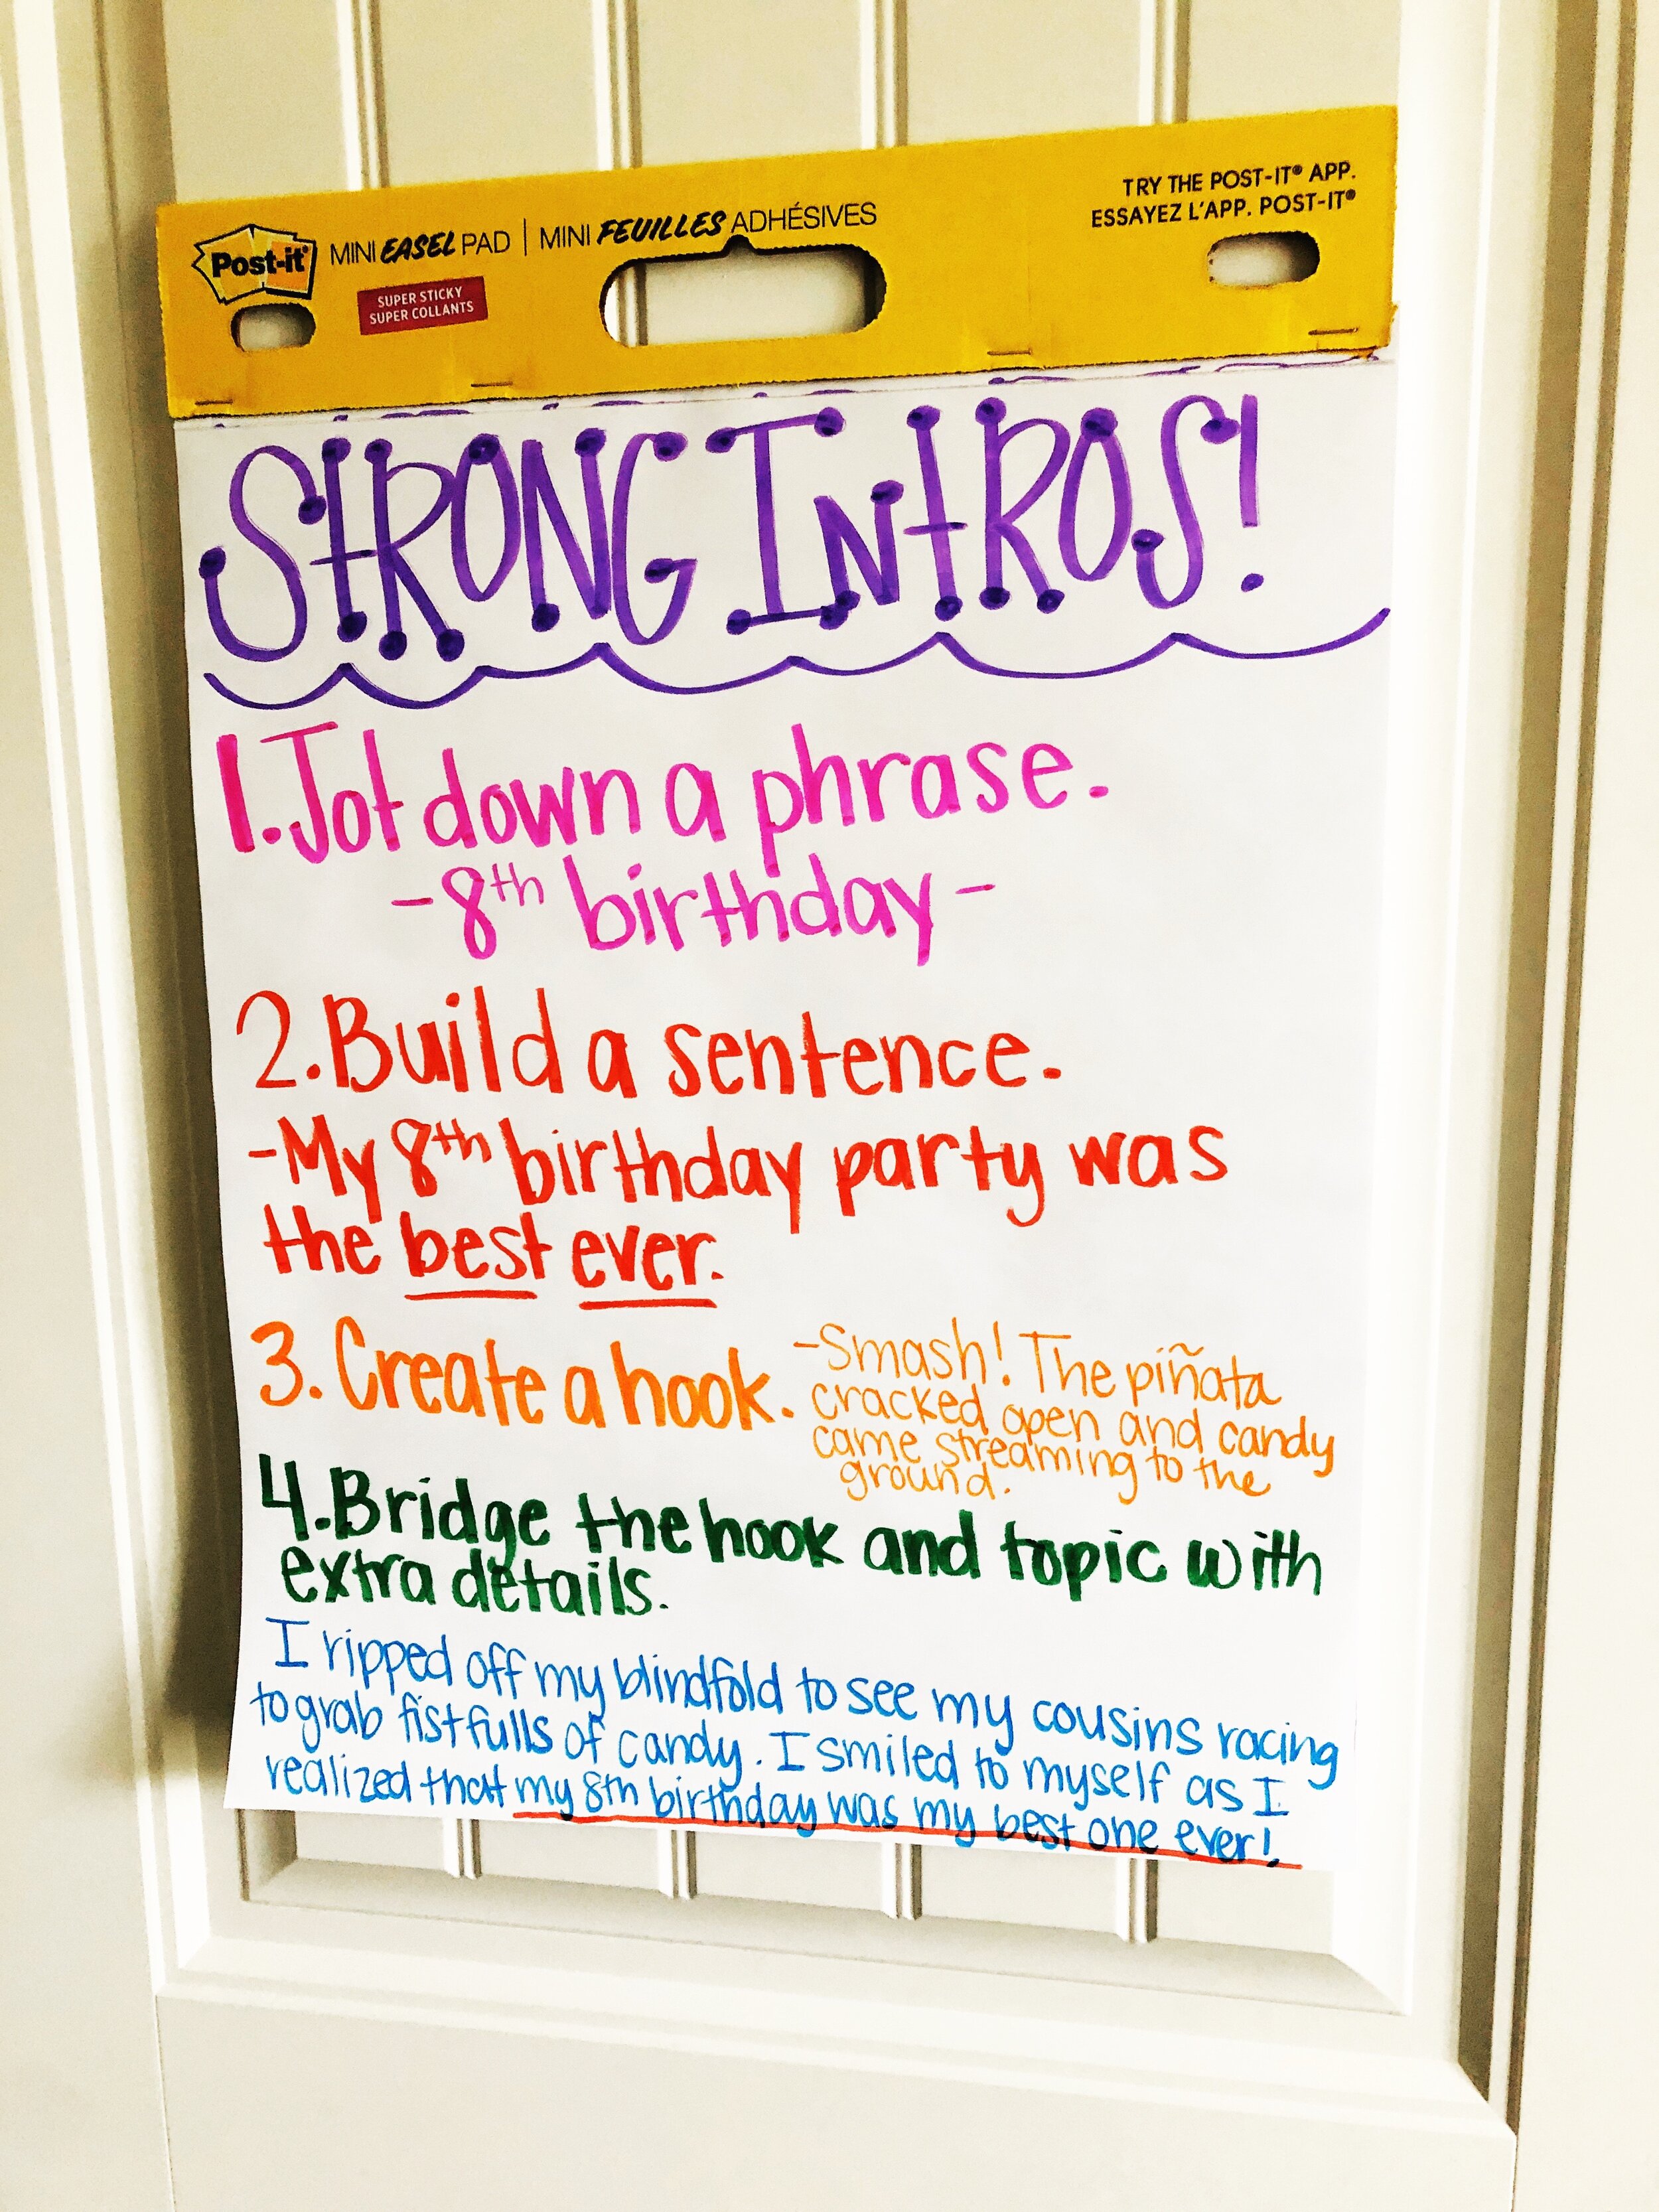 Post-it® MINI EASEL PAD | MINI FEUILLES ADHÉSIVES
SUPER STICKY
SUPER COLLANTS
TRY THE POST-IT® APP.
ESSAYEZ L'APP. POST-IT®
STRONG INTROS!
1. Jot down a phrase.
-8th birthday-
2. Build a sentence.
-My 8th birthday party was
the best ever.
3. Create a hook.
-Smash! The piñata
cracked open and candy
came streaming to the
ground.
4. Bridge the hook and topic with
extra details.
I ripped off my blindfold to see my cousins racing
to grab fistfulls of candy. I smiled to myself as I
realized that my 8th birthday was my best one ever!